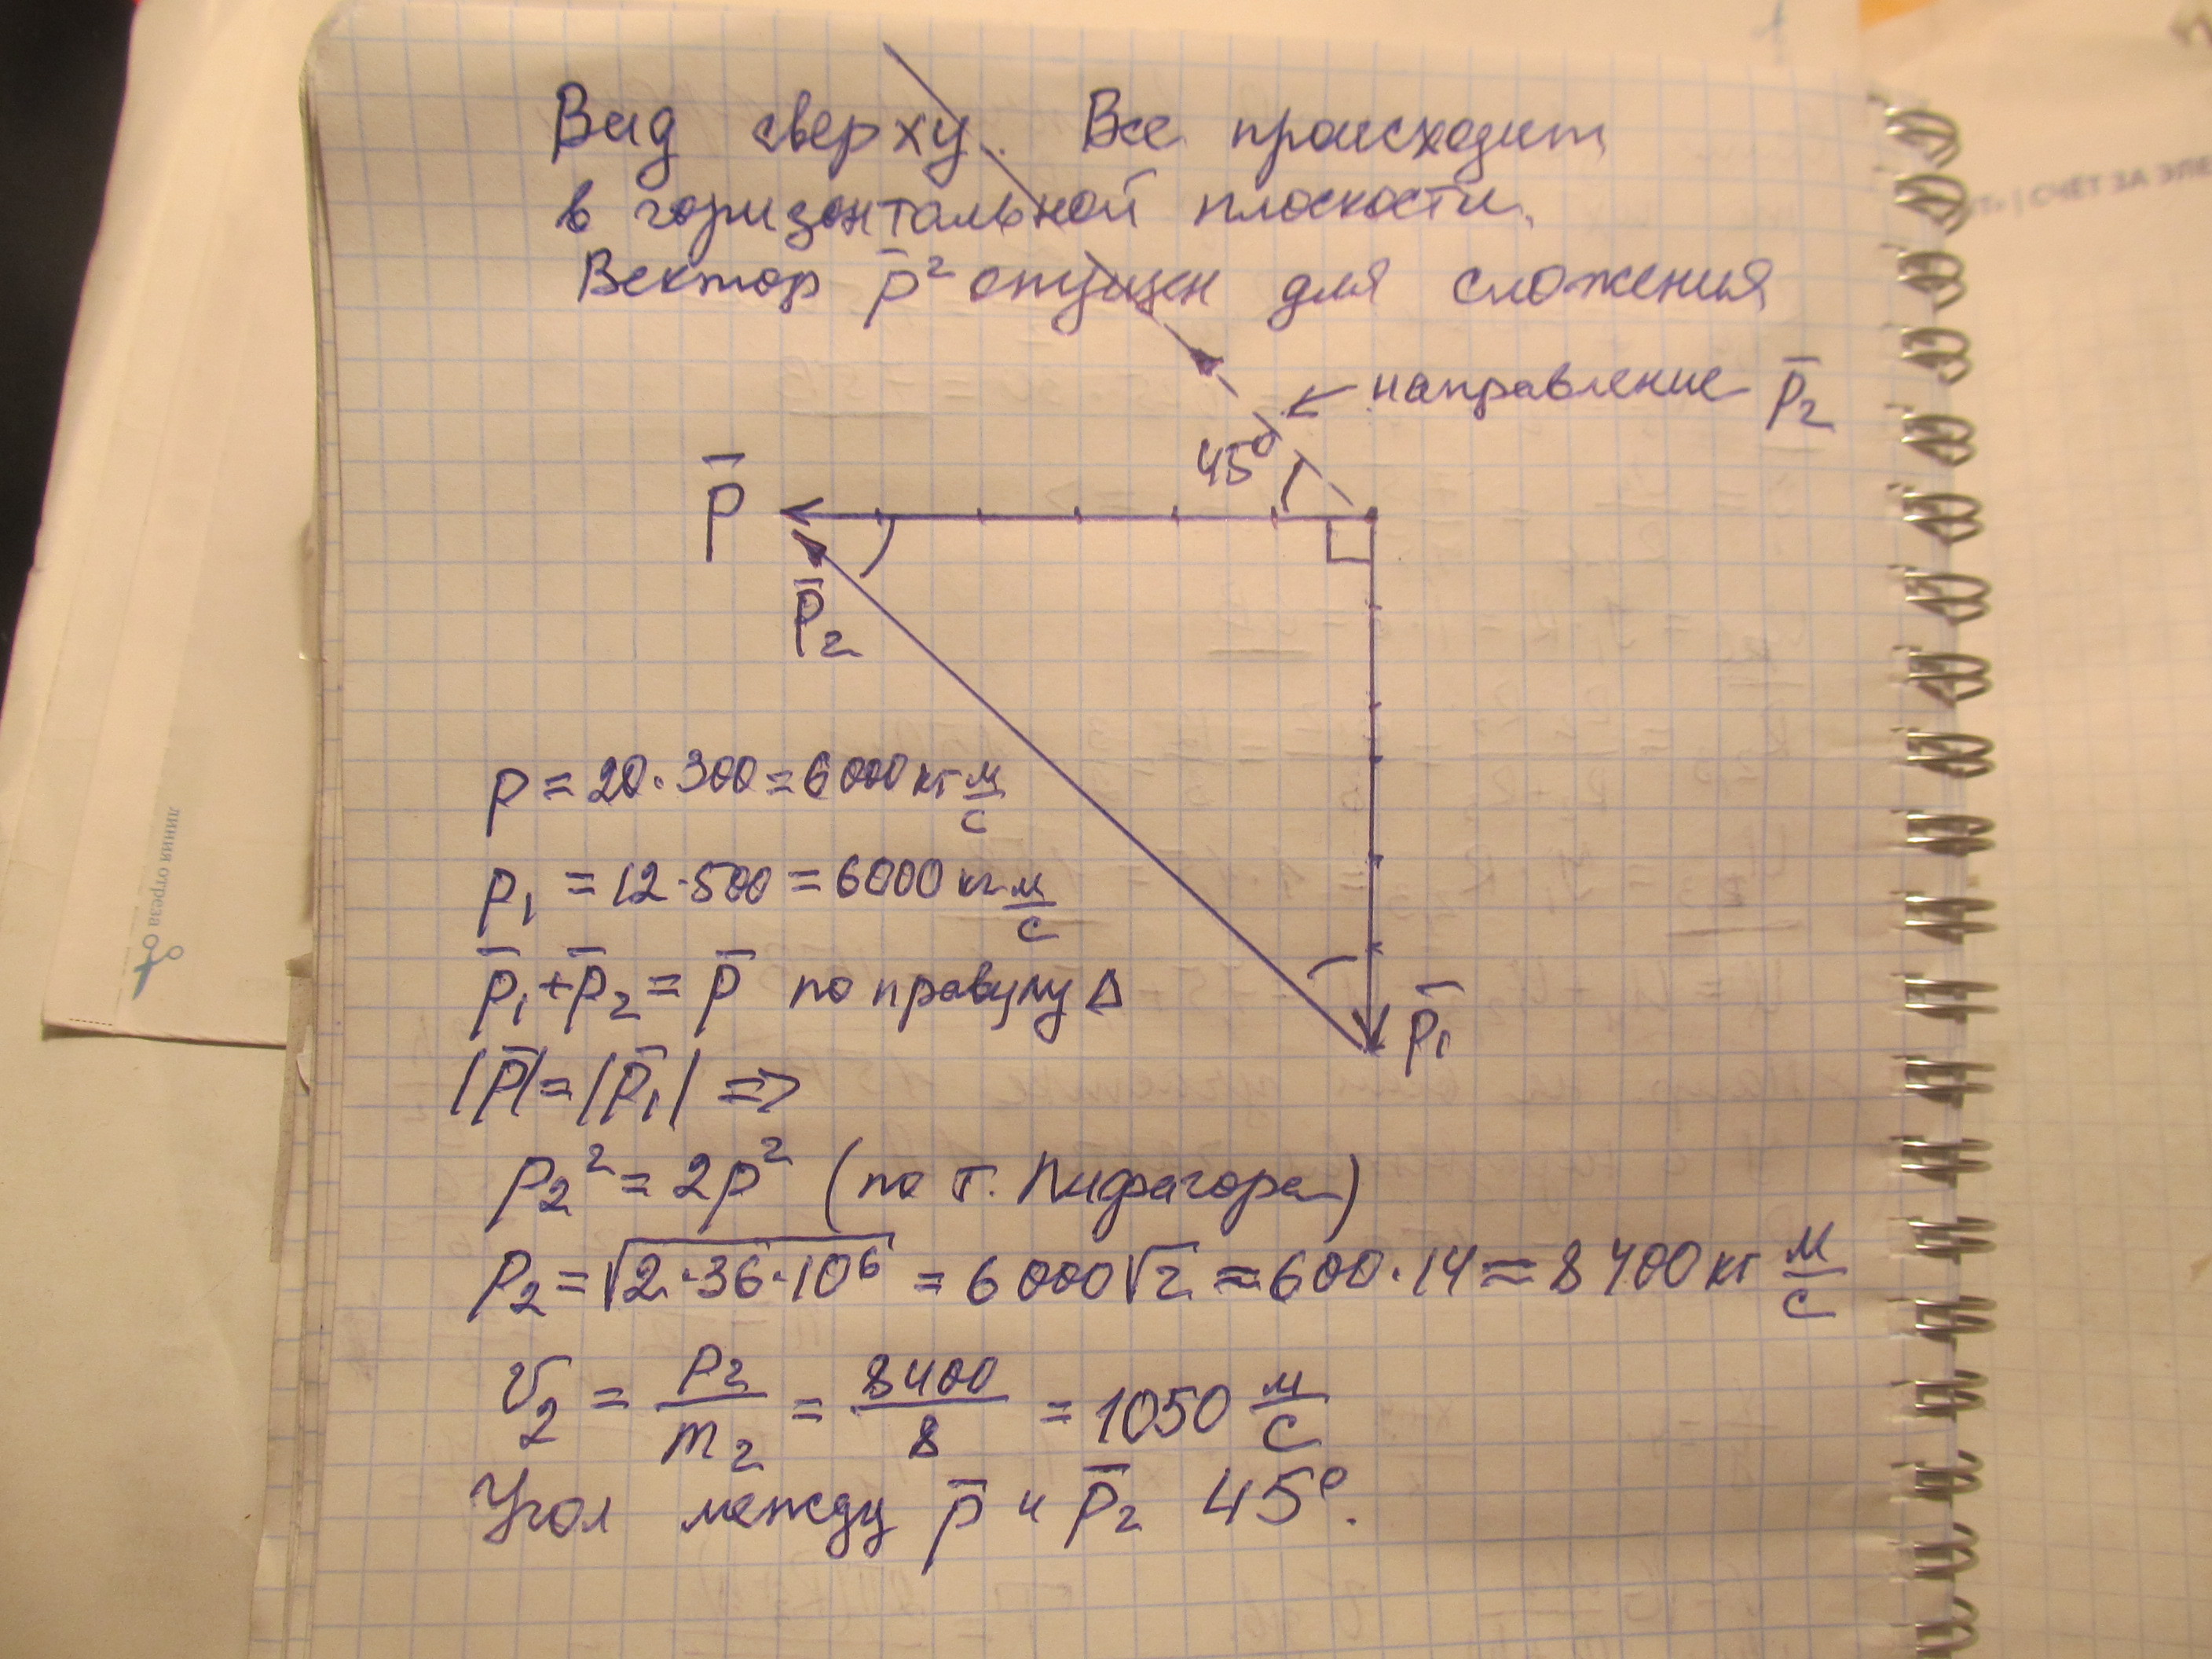 Вид сверху. Все происходит
в горизонтальной плоскости.
Вектор p̄² опущен для сложения
← направление p̄₂
45°
p̄
p̄₂
p̄₁
p = 20·300 = 6000 кг м/с
p₁ = 12·500 = 6000 кг м/с
p̄₁ + p̄₂ = p̄ по правилу Δ
|p̄| = |p̄₁| =>
p₂² = 2p² (по т. Пифагора)
p₂ = √(2·36·10⁶) = 6000√2 ≈ 600·14 = 8400 кг м/с
v₂ = p₂/m₂ = 8400/8 = 1050 м/с
Угол между p̄ и p̄₂ 45°.
линия отреза
| СЧЁТ ЗА ЭЛЕ